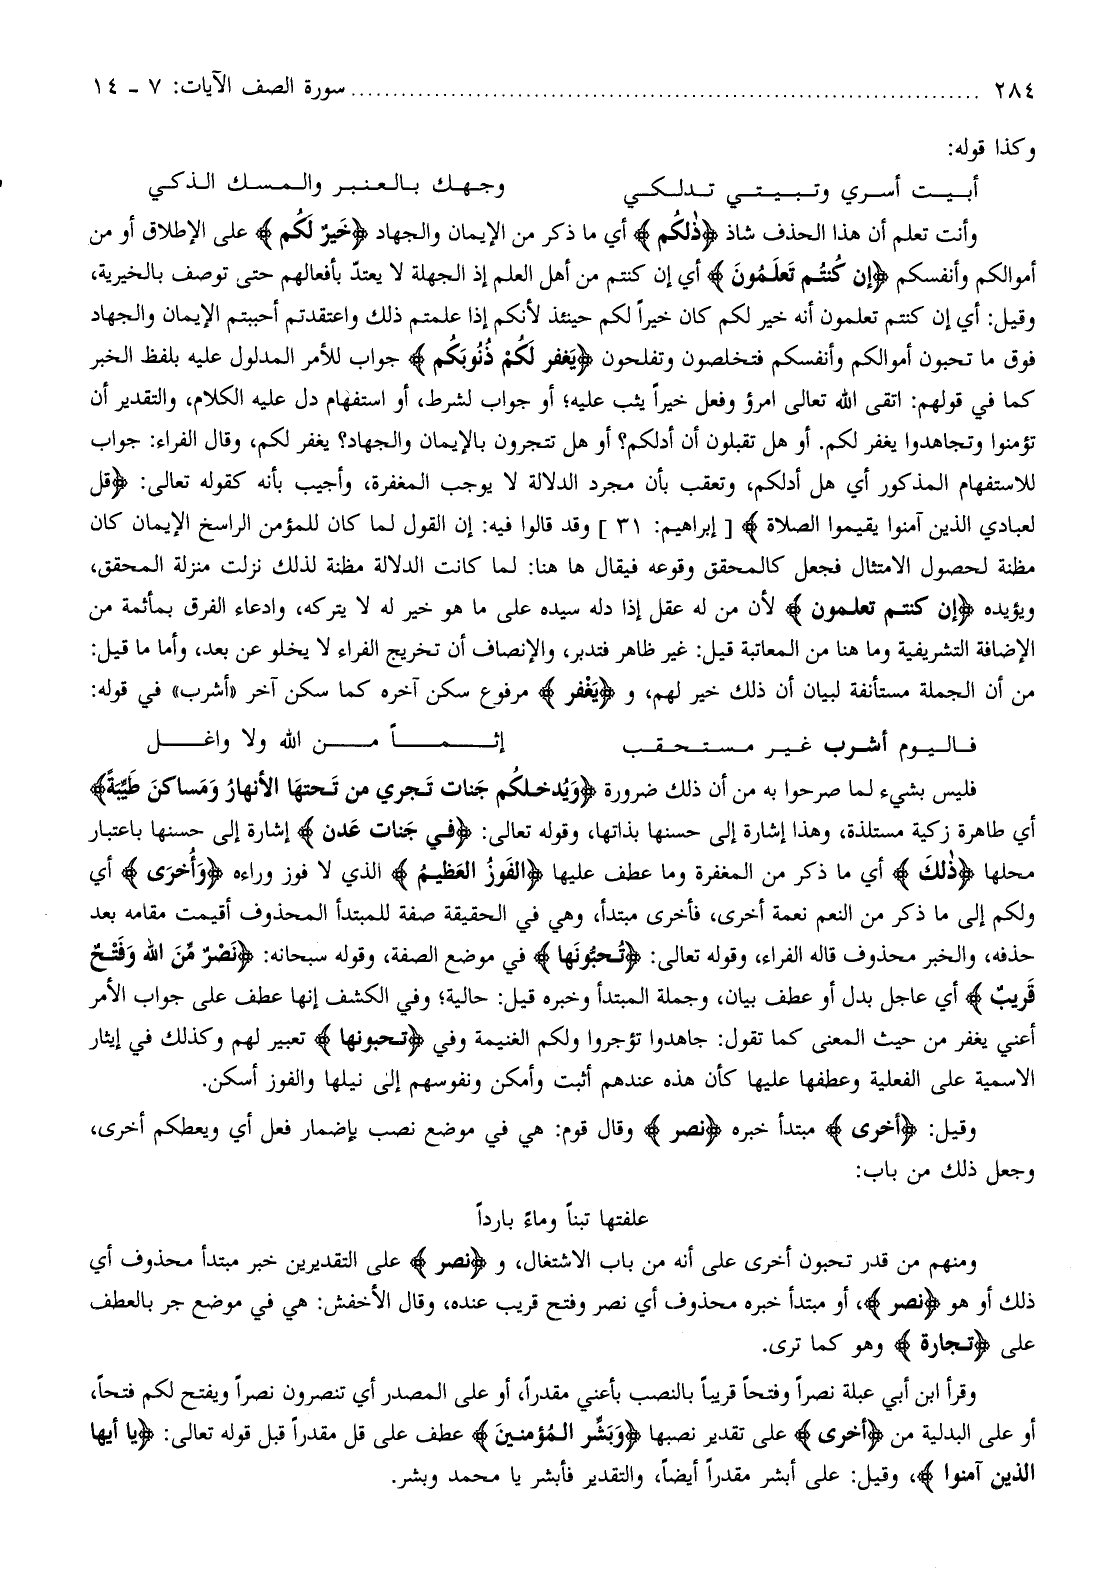 ٢٨٤ ............................................................ سورة الصف الآيات: ٧ - ١٤
وكذا قوله:
أبيت أسري وتبيتي تدلكي    وجهك بالعنبر والمسك الذكي
وأنت تعلم أن هذا الحذف شاذ ﴿ذٰلِكُم﴾ أي ما ذكر من الإيمان والجهاد ﴿خَيرٌ لَكُم﴾ على الإطلاق أو من
أموالكم وأنفسكم ﴿إن كُنتُم تَعلَمُونَ﴾ أي إن كنتم من أهل العلم إذ الجهلة لا يعتدّ بأفعالهم حتى توصف بالخيرية،
وقيل: أي إن كنتم تعلمون أنه خير لكم كان خيراً لكم حينئذ لأنكم إذا علمتم ذلك واعتقدتم أحببتم الإيمان والجهاد
فوق ما تحبون أموالكم وأنفسكم فتخلصون وتفلحون ﴿يَغفر لَكُمْ ذُنُوبَكُم﴾ جواب للأمر المدلول عليه بلفظ الخبر
كما في قولهم: اتقى الله تعالى امرؤ وفعل خيراً يثب عليه؛ أو جواب لشرط، أو استفهام دل عليه الكلام، والتقدير أن
تؤمنوا وتجاهدوا يغفر لكم. أو هل تقبلون أن أدلكم؟ أو هل تتجرون بالإيمان والجهاد؟ يغفر لكم، وقال الفراء: جواب
للاستفهام المذكور أي هل أدلكم، وتعقب بأن مجرد الدلالة لا يوجب المغفرة، وأجيب بأنه كقوله تعالى: ﴿قل
لعبادي الذين آمنوا يقيموا الصلاة﴾ [إبراهيم: ٣١] وقد قالوا فيه: إن القول لما كان للمؤمن الراسخ الإيمان كان
مظنة لحصول الامتثال فجعل كالمحقق وقوعه فيقال ها هنا: لما كانت الدلالة مظنة لذلك نزلت منزلة المحقق،
ويؤيده ﴿إن كنتم تعلمون﴾ لأن من له عقل إذا دله سيده على ما هو خير له لا يتركه، وادعاء الفرق بمأثمة من
الإضافة التشريفية وما هنا من المعاتبة قيل: غير ظاهر فتدبر، والإنصاف أن تخريج الفراء لا يخلو عن بعد، وأما ما قيل:
من أن الجملة مستأنفة لبيان أن ذلك خير لهم، و ﴿يَغْفر﴾ مرفوع سكن آخره كما سكن آخر «أشرب» في قوله:
فاليوم أشرب غير مستحقب    إثماً من الله ولا واغل
فليس بشيء لما صرحوا به من أن ذلك ضرورة ﴿وَيُدخلكُم جَنات تَجري من تَحتهَا الأنهارُ وَمَساكنَ طَيِّبَةً﴾
أي طاهرة زكية مستلذة، وهذا إشارة إلى حسنها بذاتها، وقوله تعالى: ﴿في جَنات عَدن﴾ إشارة إلى حسنها باعتبار
محلها ﴿ذٰلكَ﴾ أي ما ذكر من المغفرة وما عطف عليها ﴿الفَوزُ العَظيمُ﴾ الذي لا فوز وراءه ﴿وَأُخرَى﴾ أي
ولكم إلى ما ذكر من النعم نعمة أخرى، فأخرى مبتدأ، وهي في الحقيقة صفة للمبتدأ المحذوف أقيمت مقامه بعد
حذفه، والخبر محذوف قاله الفراء، وقوله تعالى: ﴿تُحبُّونَها﴾ في موضع الصفة، وقوله سبحانه: ﴿نَصْرٌ مِّنَ الله وَفَتْحٌ
قَريبٌ﴾ أي عاجل بدل أو عطف بيان، وجملة المبتدأ وخبره قيل: حالية؛ وفي الكشف إنها عطف على جواب الأمر
أعني يغفر من حيث المعنى كما تقول: جاهدوا تؤجروا ولكم الغنيمة وفي ﴿تحبونها﴾ تعبير لهم وكذلك في إيثار
الاسمية على الفعلية وعطفها عليها كأن هذه عندهم أثبت وأمكن ونفوسهم إلى نيلها والفوز أسكن.
وقيل: ﴿أخرى﴾ مبتدأ خبره ﴿نصر﴾ وقال قوم: هي في موضع نصب بإضمار فعل أي ويعطكم أخرى،
وجعل ذلك من باب:
علفتها تبناً وماءً بارداً
ومنهم من قدر تحبون أخرى على أنه من باب الاشتغال، و ﴿نصر﴾ على التقديرين خبر مبتدأ محذوف أي
ذلك أو هو ﴿نصر﴾، أو مبتدأ خبره محذوف أي نصر وفتح قريب عنده، وقال الأخفش: هي في موضع جر بالعطف
على ﴿تجارة﴾ وهو كما ترى.
وقرأ ابن أبي عبلة نصراً وفتحاً قريباً بالنصب بأعني مقدراً، أو على المصدر أي تنصرون نصراً ويفتح لكم فتحاً،
أو على البدلية من ﴿أخرى﴾ على تقدير نصبها ﴿وَبَشِّر المُؤمنينَ﴾ عطف على قل مقدراً قبل قوله تعالى: ﴿يا أيها
الذين آمنوا﴾، وقيل: على أبشر مقدراً أيضاً، والتقدير فأبشر يا محمد وبشر.